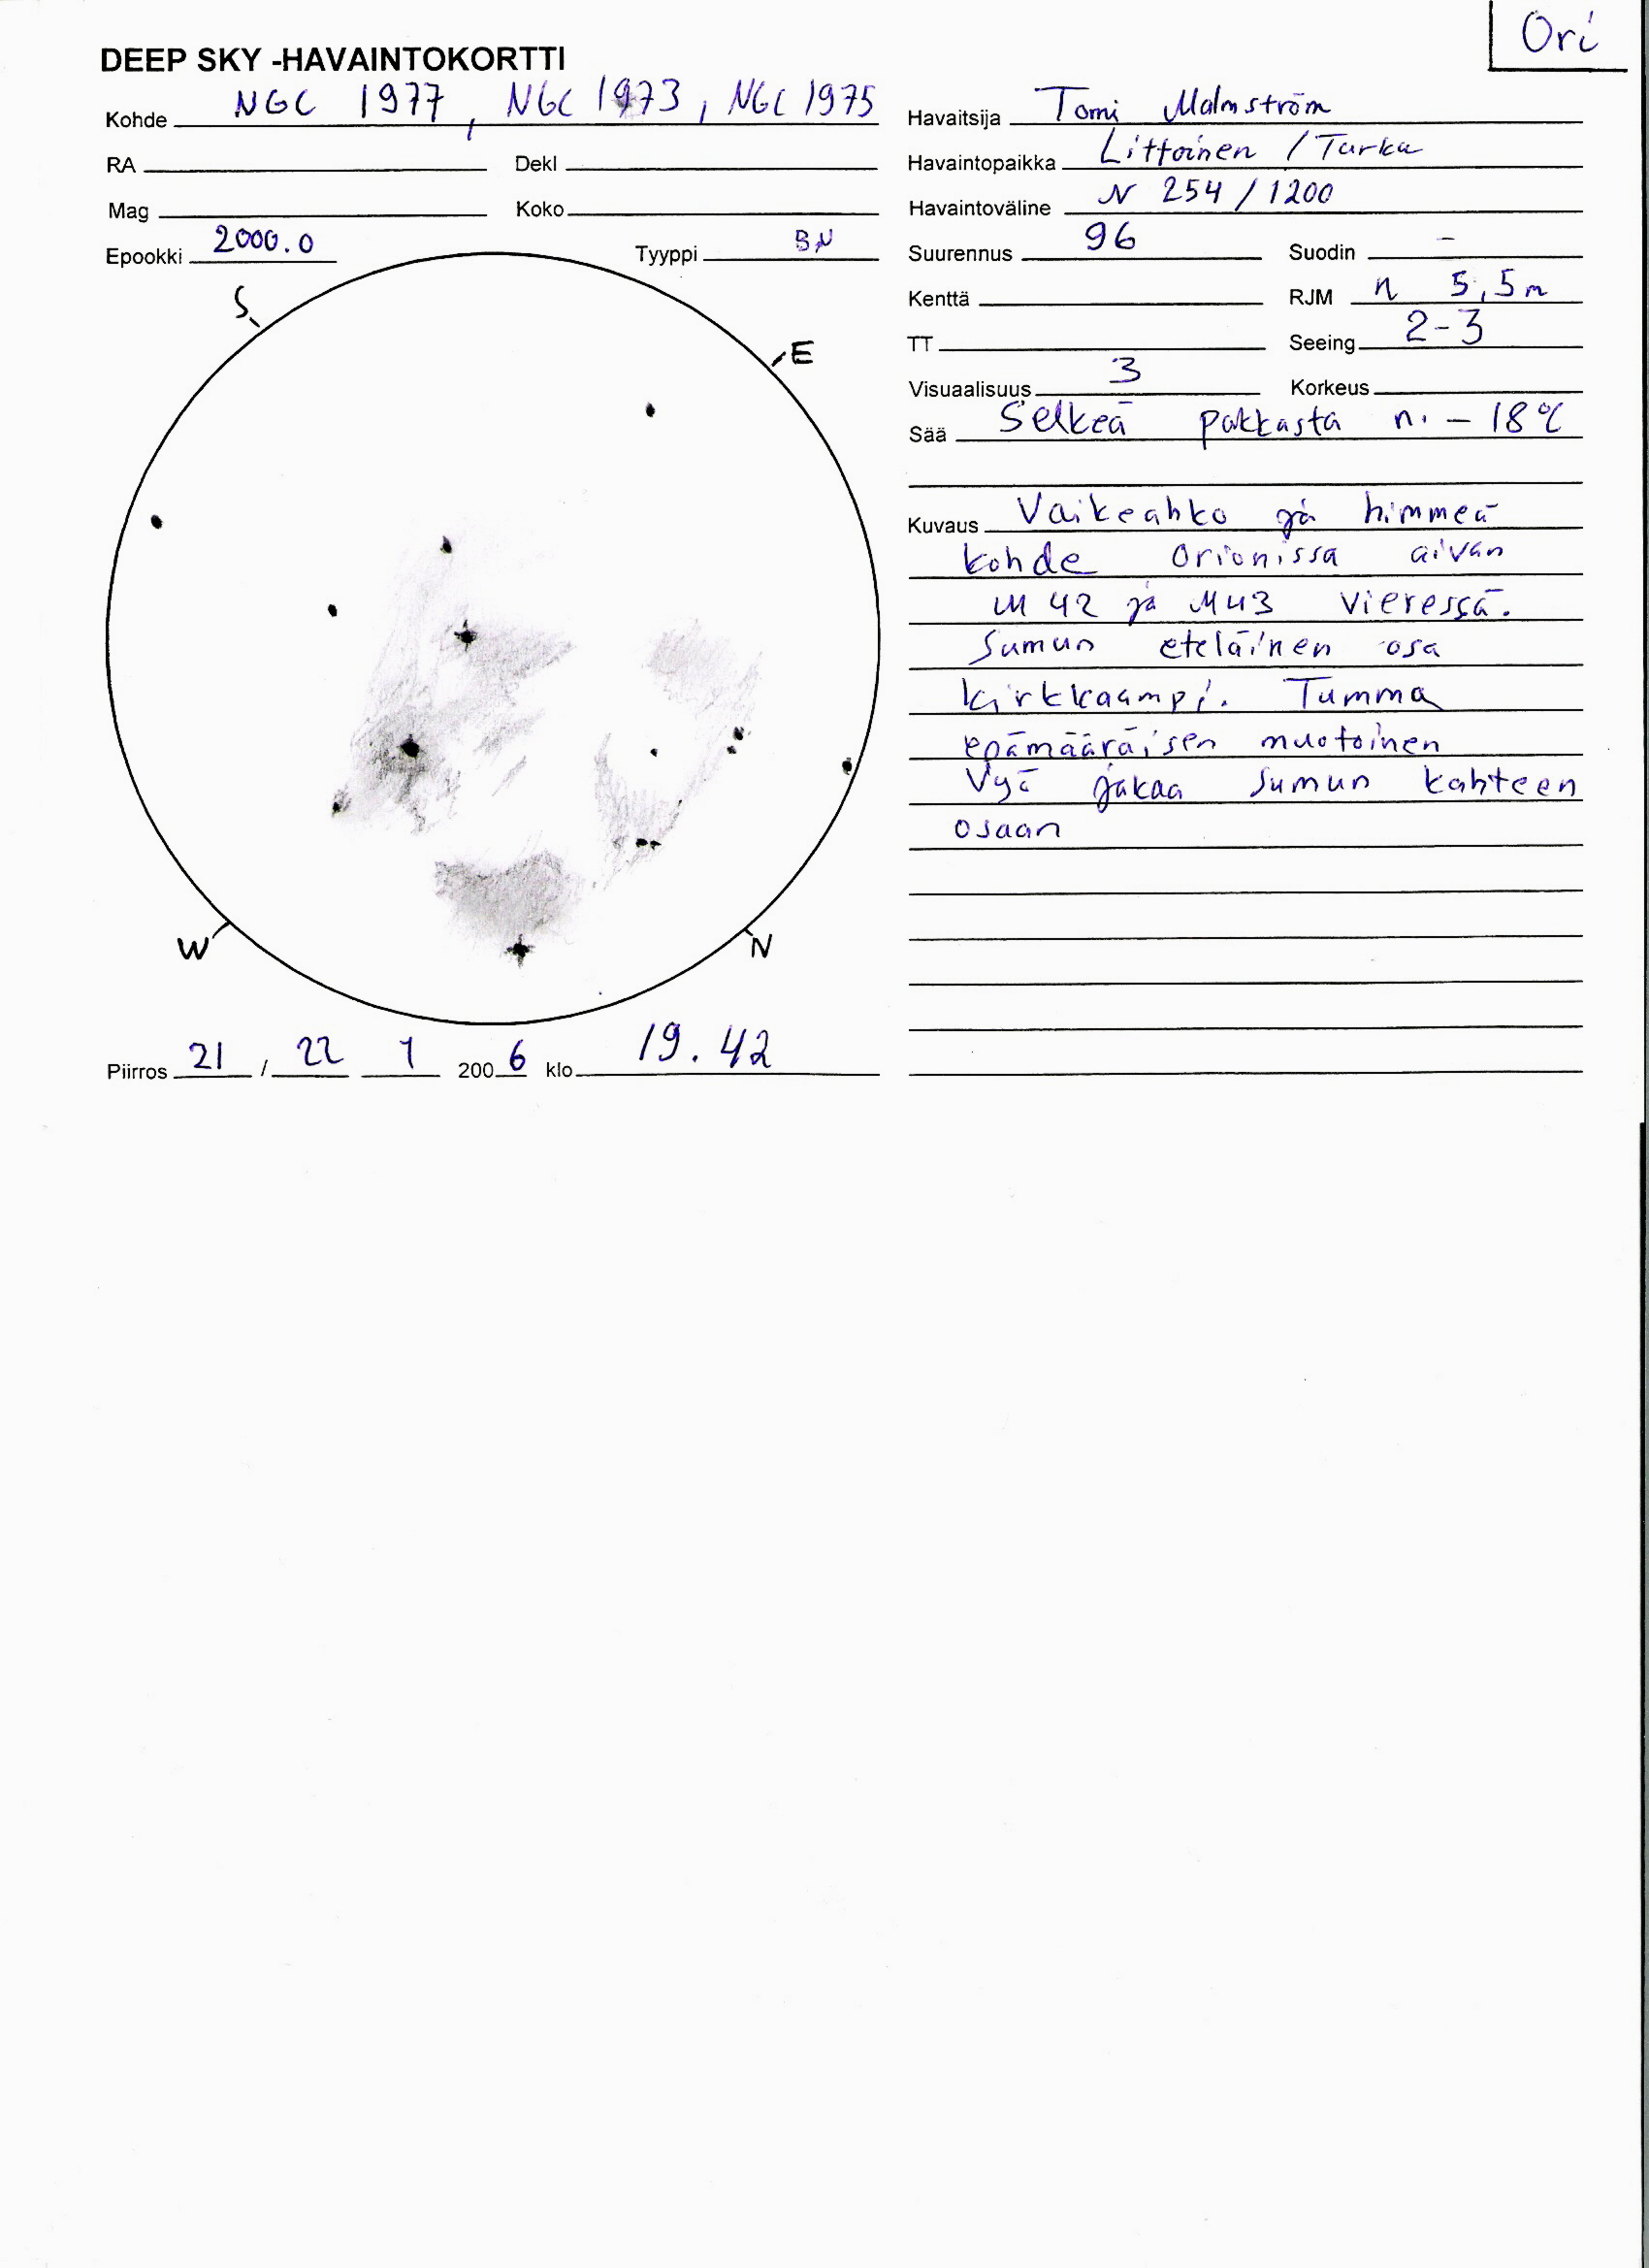 Ori
DEEP SKY -HAVAINTOKORTTI
Kohde NGC 1977, NGC 1973, NGC 1975
RA Dekl
Mag Koko
Epookki 2000.0 Tyyppi BN
S
E
W
N
Piirros 21 / 22 1 2006 klo 19.42
Havaitsija Tomi Malmström
Havaintopaikka Littoinen / Turku
Havaintoväline N 254 / 1200
Suurennus 96 Suodin –
Kenttä RJM n 5,5m
TT Seeing 2-3
Visuaalisuus 3 Korkeus
Sää Selkeä pakkasta n. – 18°C
Kuvaus Vaikeahko ja himmeä
kohde Orionissa aivan
M 42 ja M43 vieressä.
Sumun eteläinen osa
kirkkaampi. Tumma
epämääräisen muotoinen
Vyö jakaa sumun kahteen
osaan